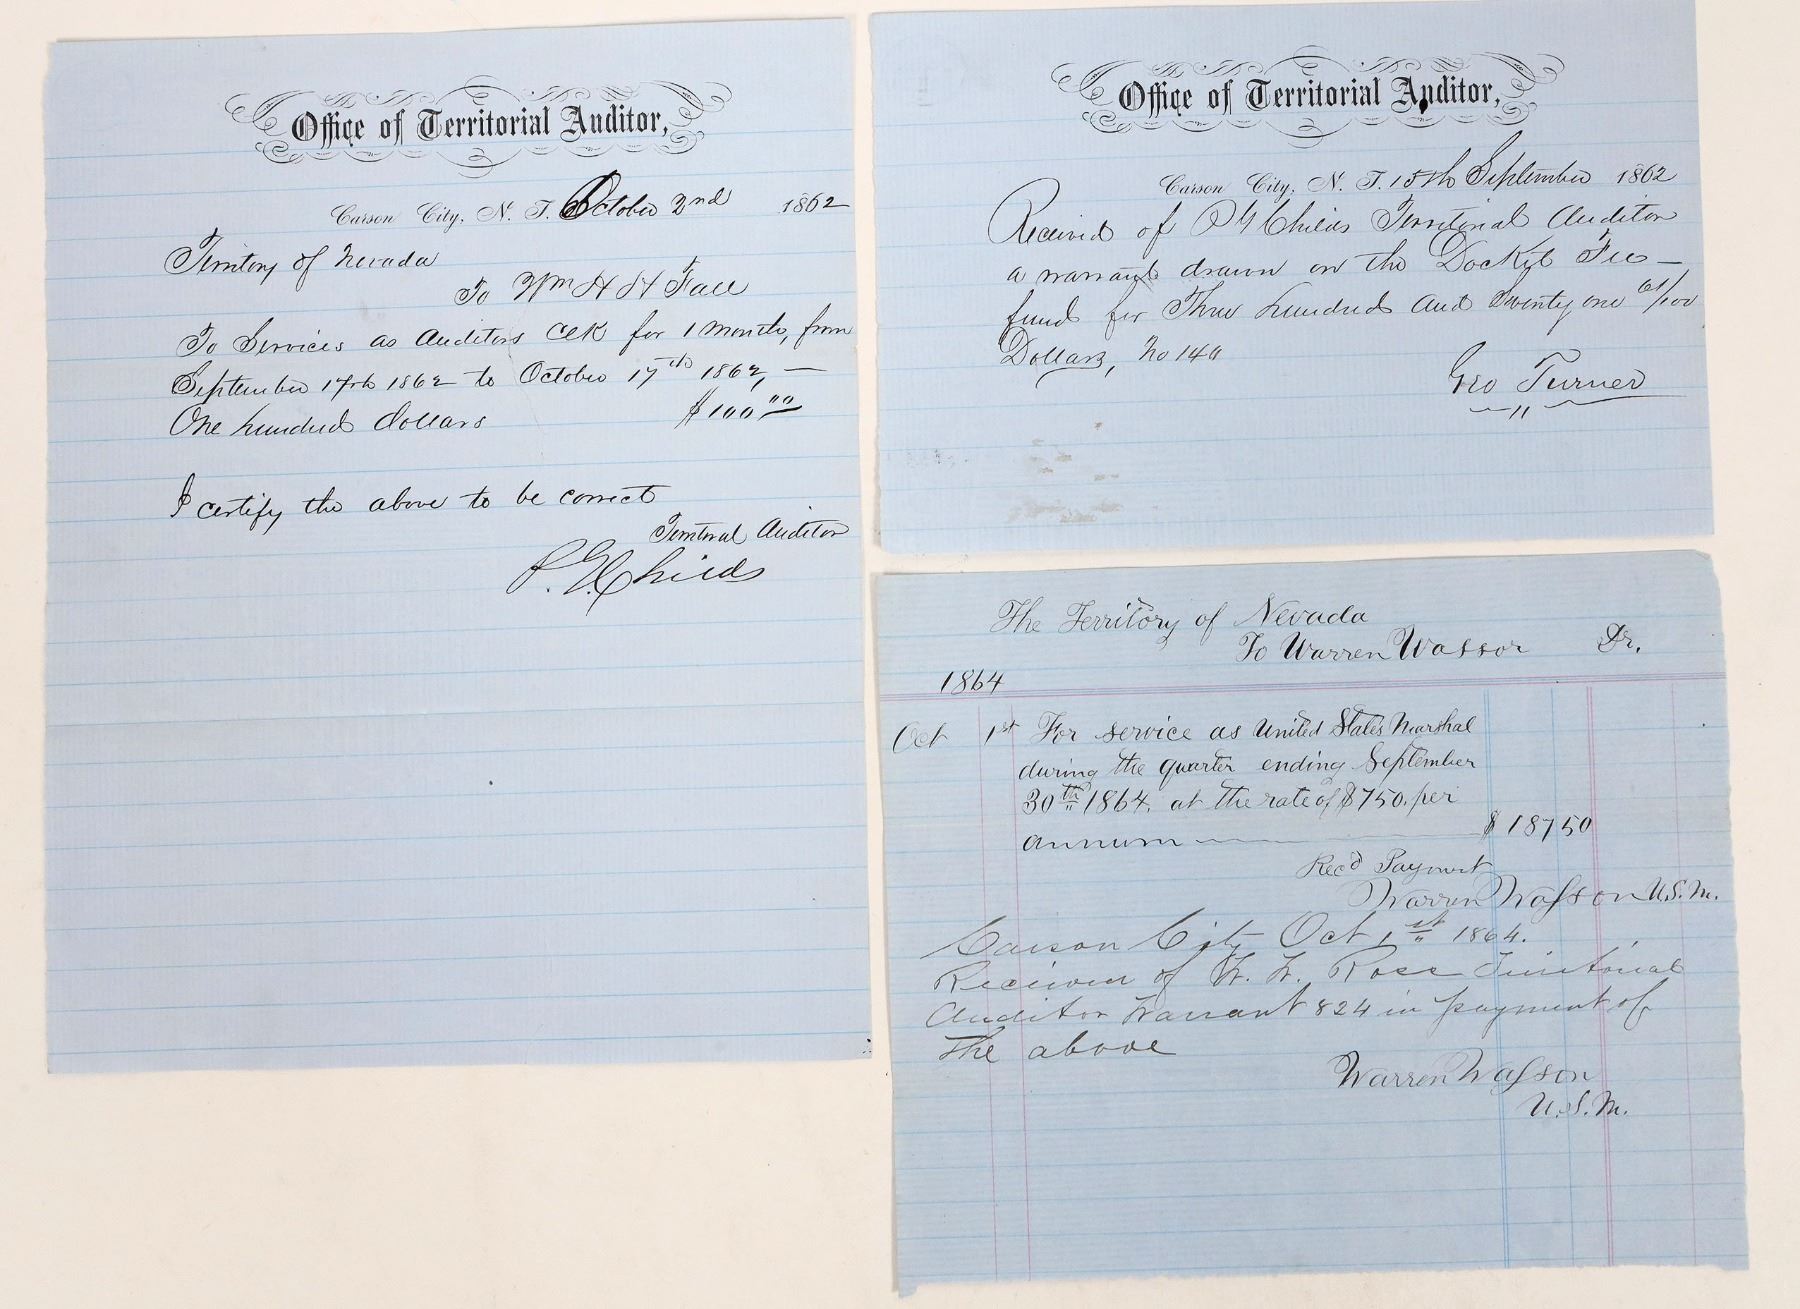 Office of Territorial Auditor,
Carson City, N. T. October 2nd 1862
Territory of Nevada
To Wm H H Fall
To Services as Auditors Clk for 1 Month, from
September 17th 1862 to October 17th 1862, —
One hundred dollars $100.00
I certify the above to be correct
Territorial Auditor
P. G. Childs
Office of Territorial Auditor,
Carson City, N. T. 15th September 1862
Received of P G Childs Territorial Auditor
a warrant drawn on the Docket Fee —
fund for Three hundred and Twenty one 61/100
Dollars, No 140
Geo Turner
The Territory of Nevada
To Warren Wasson Dr.
1864
Oct 1st For service as United States Marshal
during the quarter ending September
30th 1864, at the rate of $750. per
annum $187 50
Rec'd Payment
Warren Wasson U.S.M.
Carson City Oct 1st 1864.
Received of W. W. Ross Territorial
Auditor Warrant 824 in payment of
the above
Warren Wasson
U.S.M.